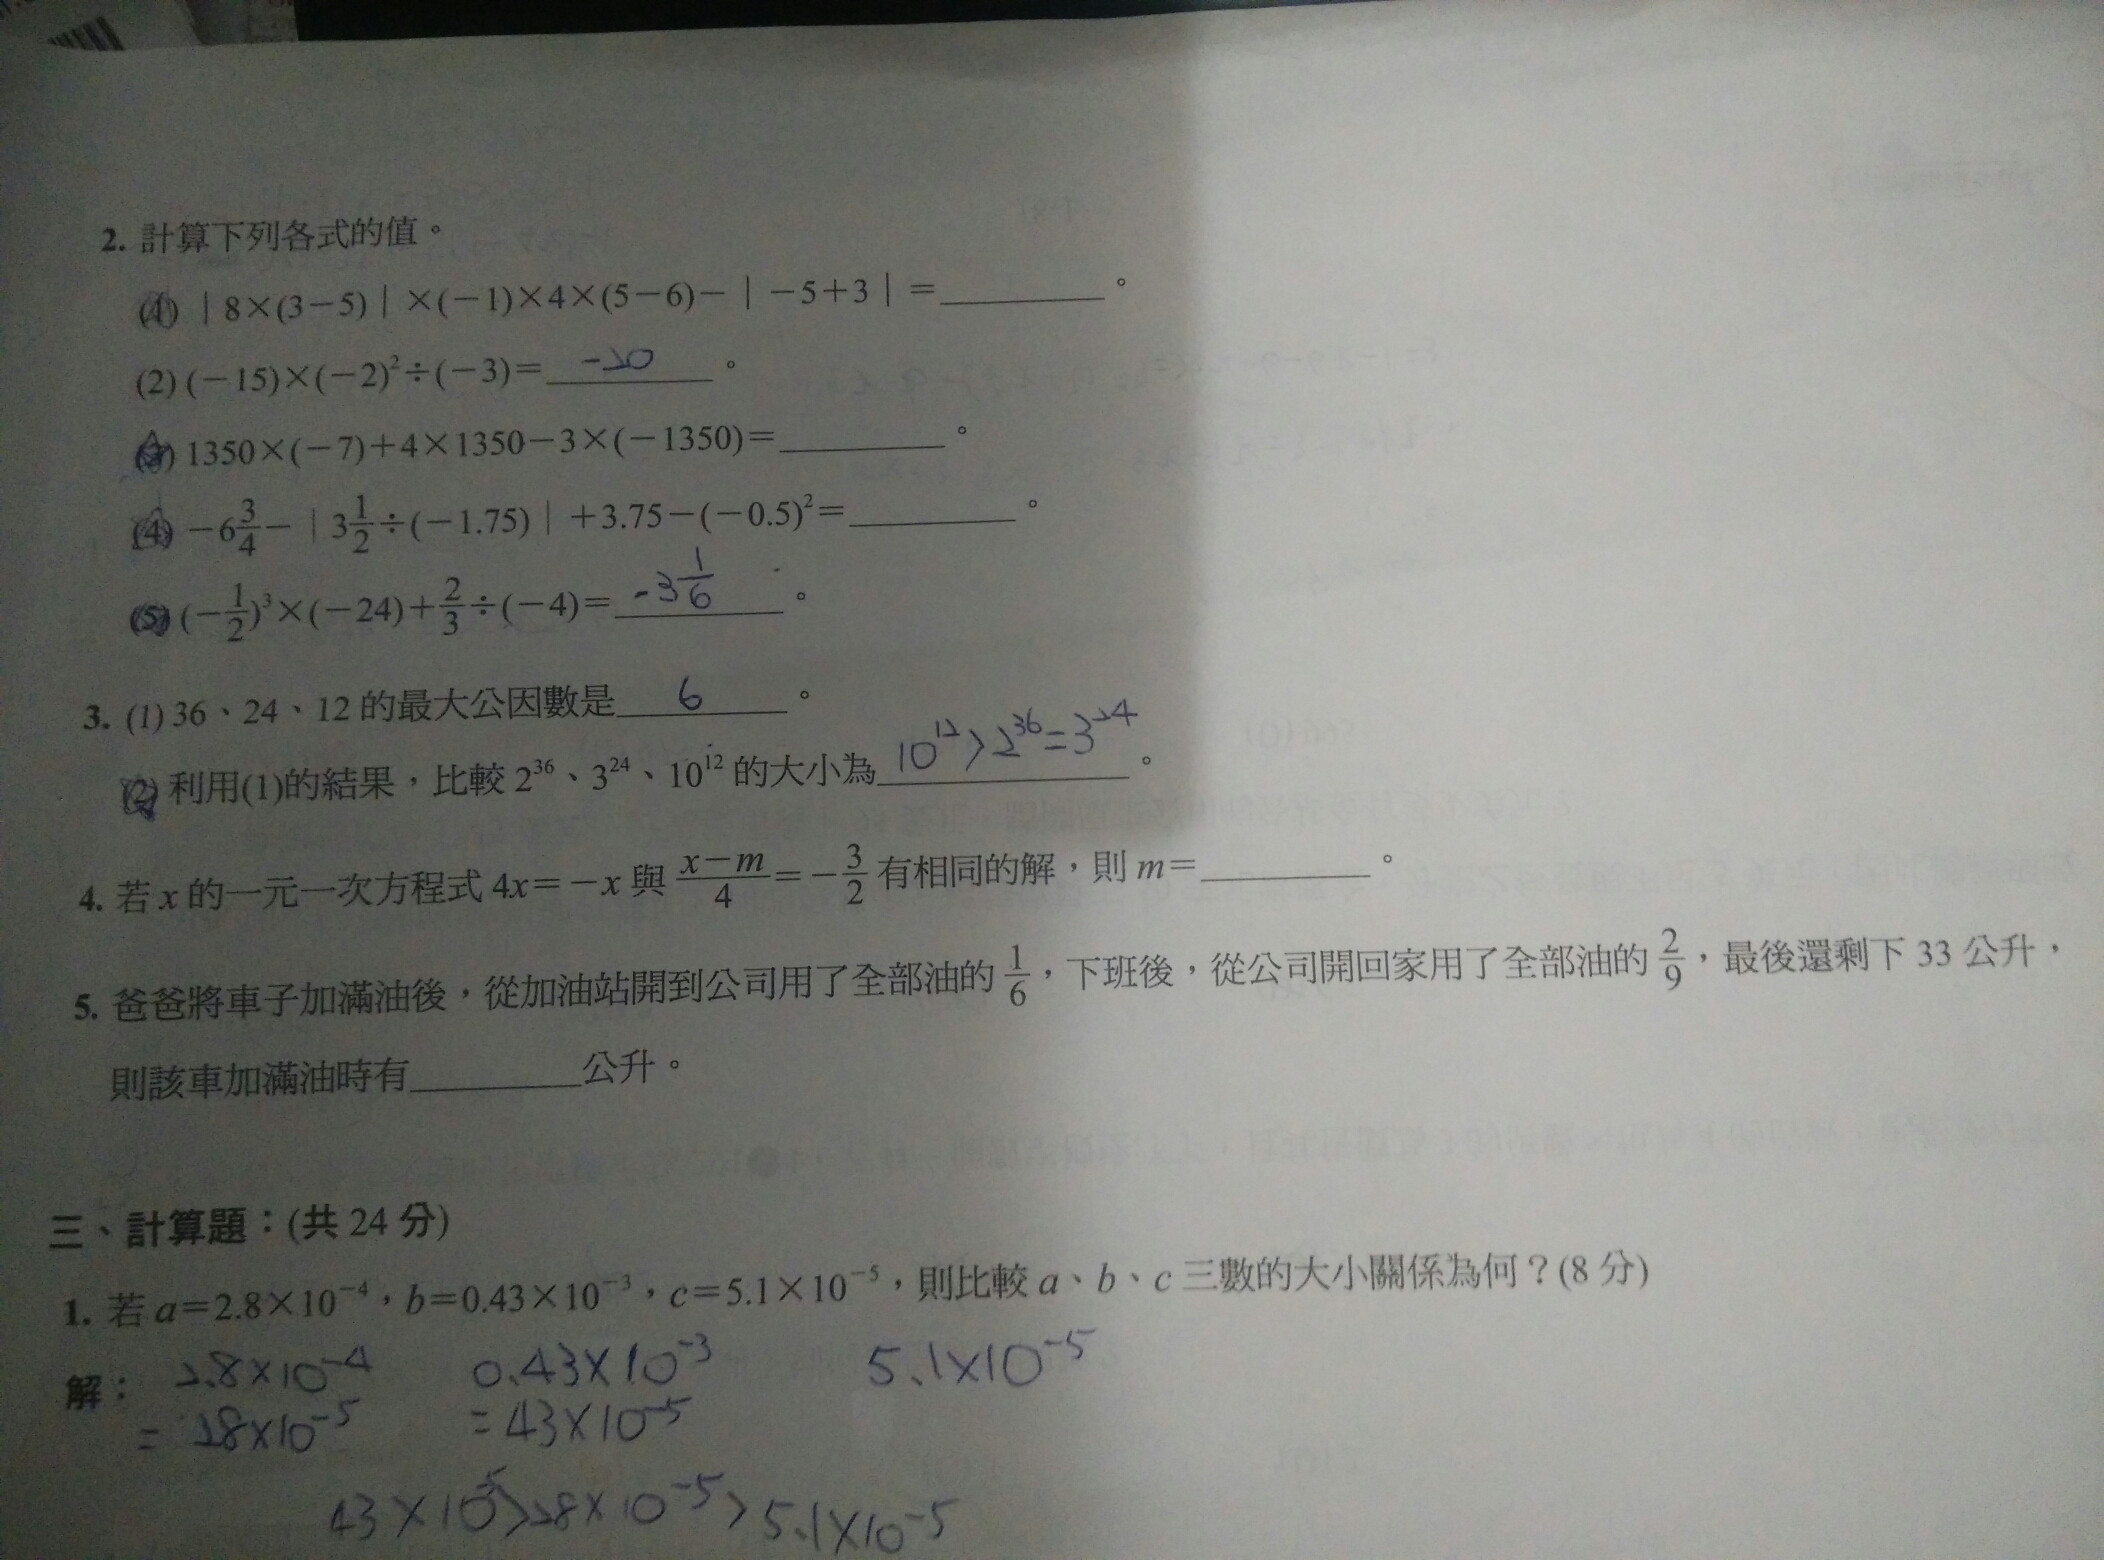 2. 計算下列各式的值。
(1) | 8×(3-5) | ×(-1)×4×(5-6)- | -5+3 | =________。
(2) (-15)×(-2)²÷(-3)= -20 。
(3) 1350×(-7)+4×1350-3×(-1350)=________。
(4) -6 3/4 - | 3 1/2÷(-1.75) | +3.75-(-0.5)²=________。
(5) (-1/2)³×(-24)+2/3÷(-4)= -3 1/6 。
3. (1) 36、24、12 的最大公因數是 6 。
(2) 利用(1)的結果,比較 2³⁶、3²⁴、10¹² 的大小為 10¹²>2³⁶=3²⁴ 。
4. 若 x 的一元一次方程式 4x=-x 與 (x-m)/4=-3/2 有相同的解,則 m=________。
5. 爸爸將車子加滿油後,從加油站開到公司用了全部油的 1/6,下班後,從公司開回家用了全部油的 2/9,最後還剩下 33 公升,
則該車加滿油時有________公升。
三、計算題:(共 24 分)
1. 若 a=2.8×10⁻⁴,b=0.43×10⁻³,c=5.1×10⁻⁵,則比較 a、b、c 三數的大小關係為何?(8 分)
解: 2.8×10⁻⁴ 0.43×10⁻³ 5.1×10⁻⁵
= 28×10⁻⁵ = 43×10⁻⁵
43×10⁻⁵>28×10⁻⁵>5.1×10⁻⁵